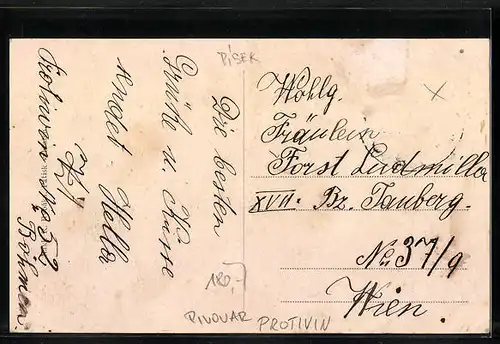 PÍSEK
Die besten
Grüße u. Küsse
sendet Hella
Wohlg.
Fräulein
Forst Ludmilla
XVII. Bz. Tauberg.
No. 37/9
Wien.
180,-
PIVOVAR PROTIVIN